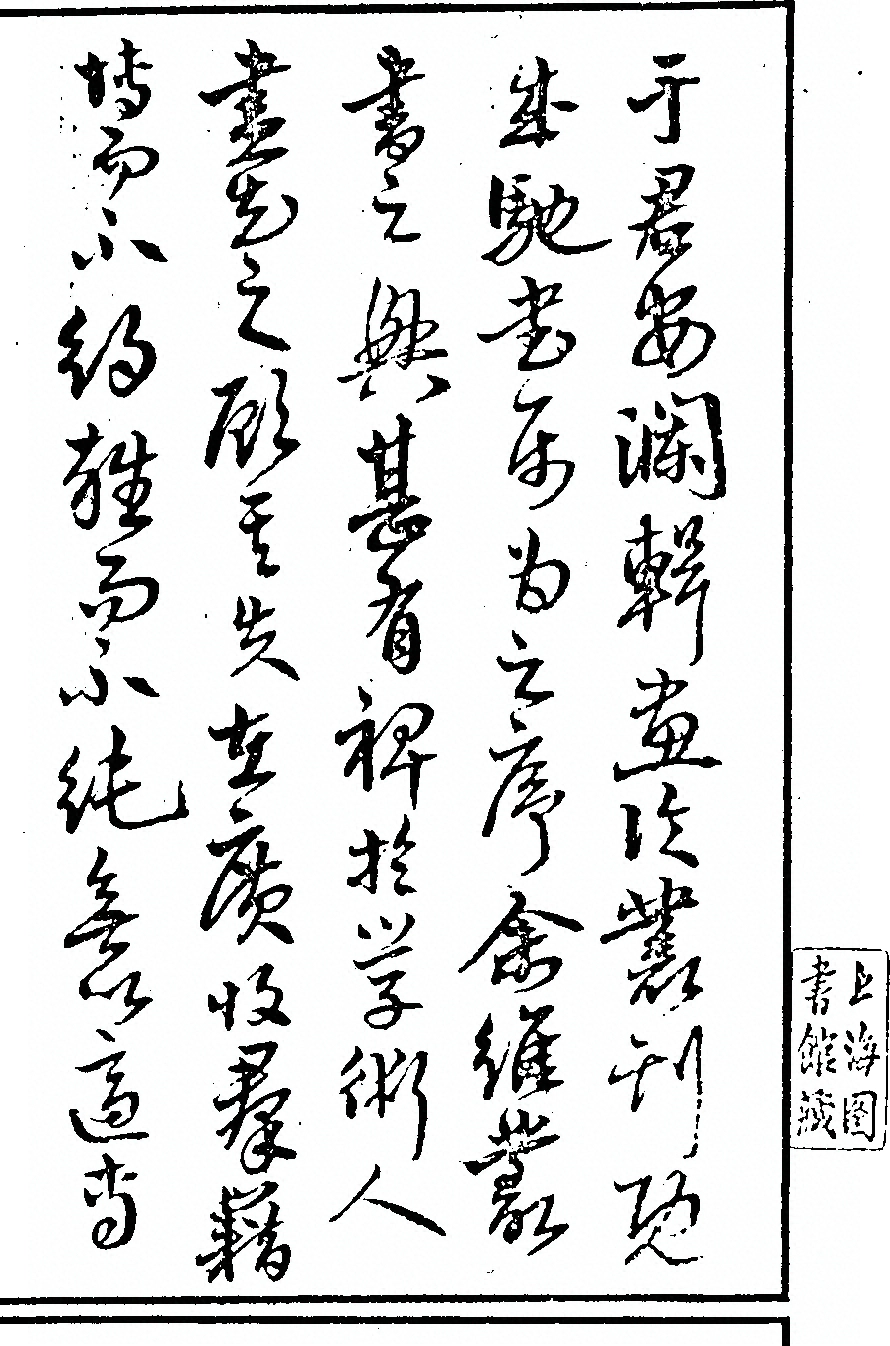 于君安瀾輯畫論叢刊既
成馳書屬為之序余維叢
書之興甚有裨於學術人
盡知之顧其失在廣收羣籍
博而不約雜而不純無以適當
上海图
書館藏